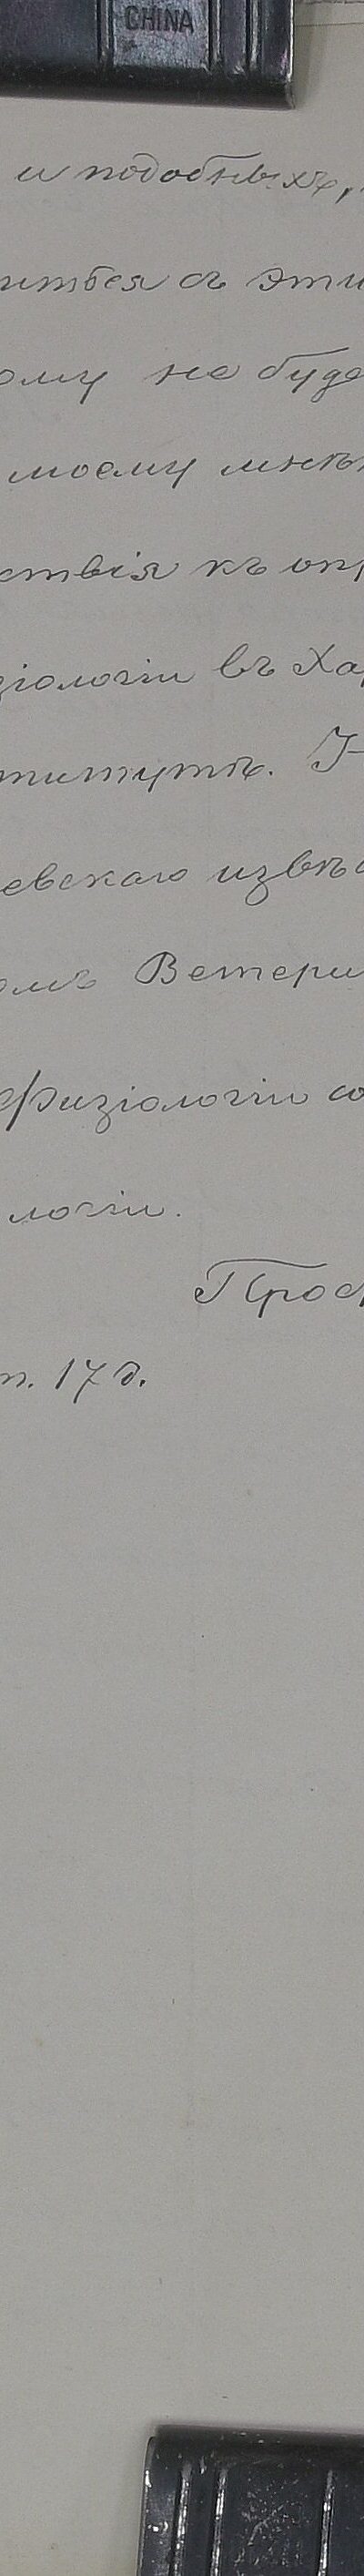 CHINA
и подобныхъ,
иться съ эти
ому не буде
моему мнѣн
ствія къ опр
зіологіи въ Ха
титутѣ. Г
евскаго извѣс
омъ Ветери
физіологіи со
логіи.
Проф
т. 17 д.